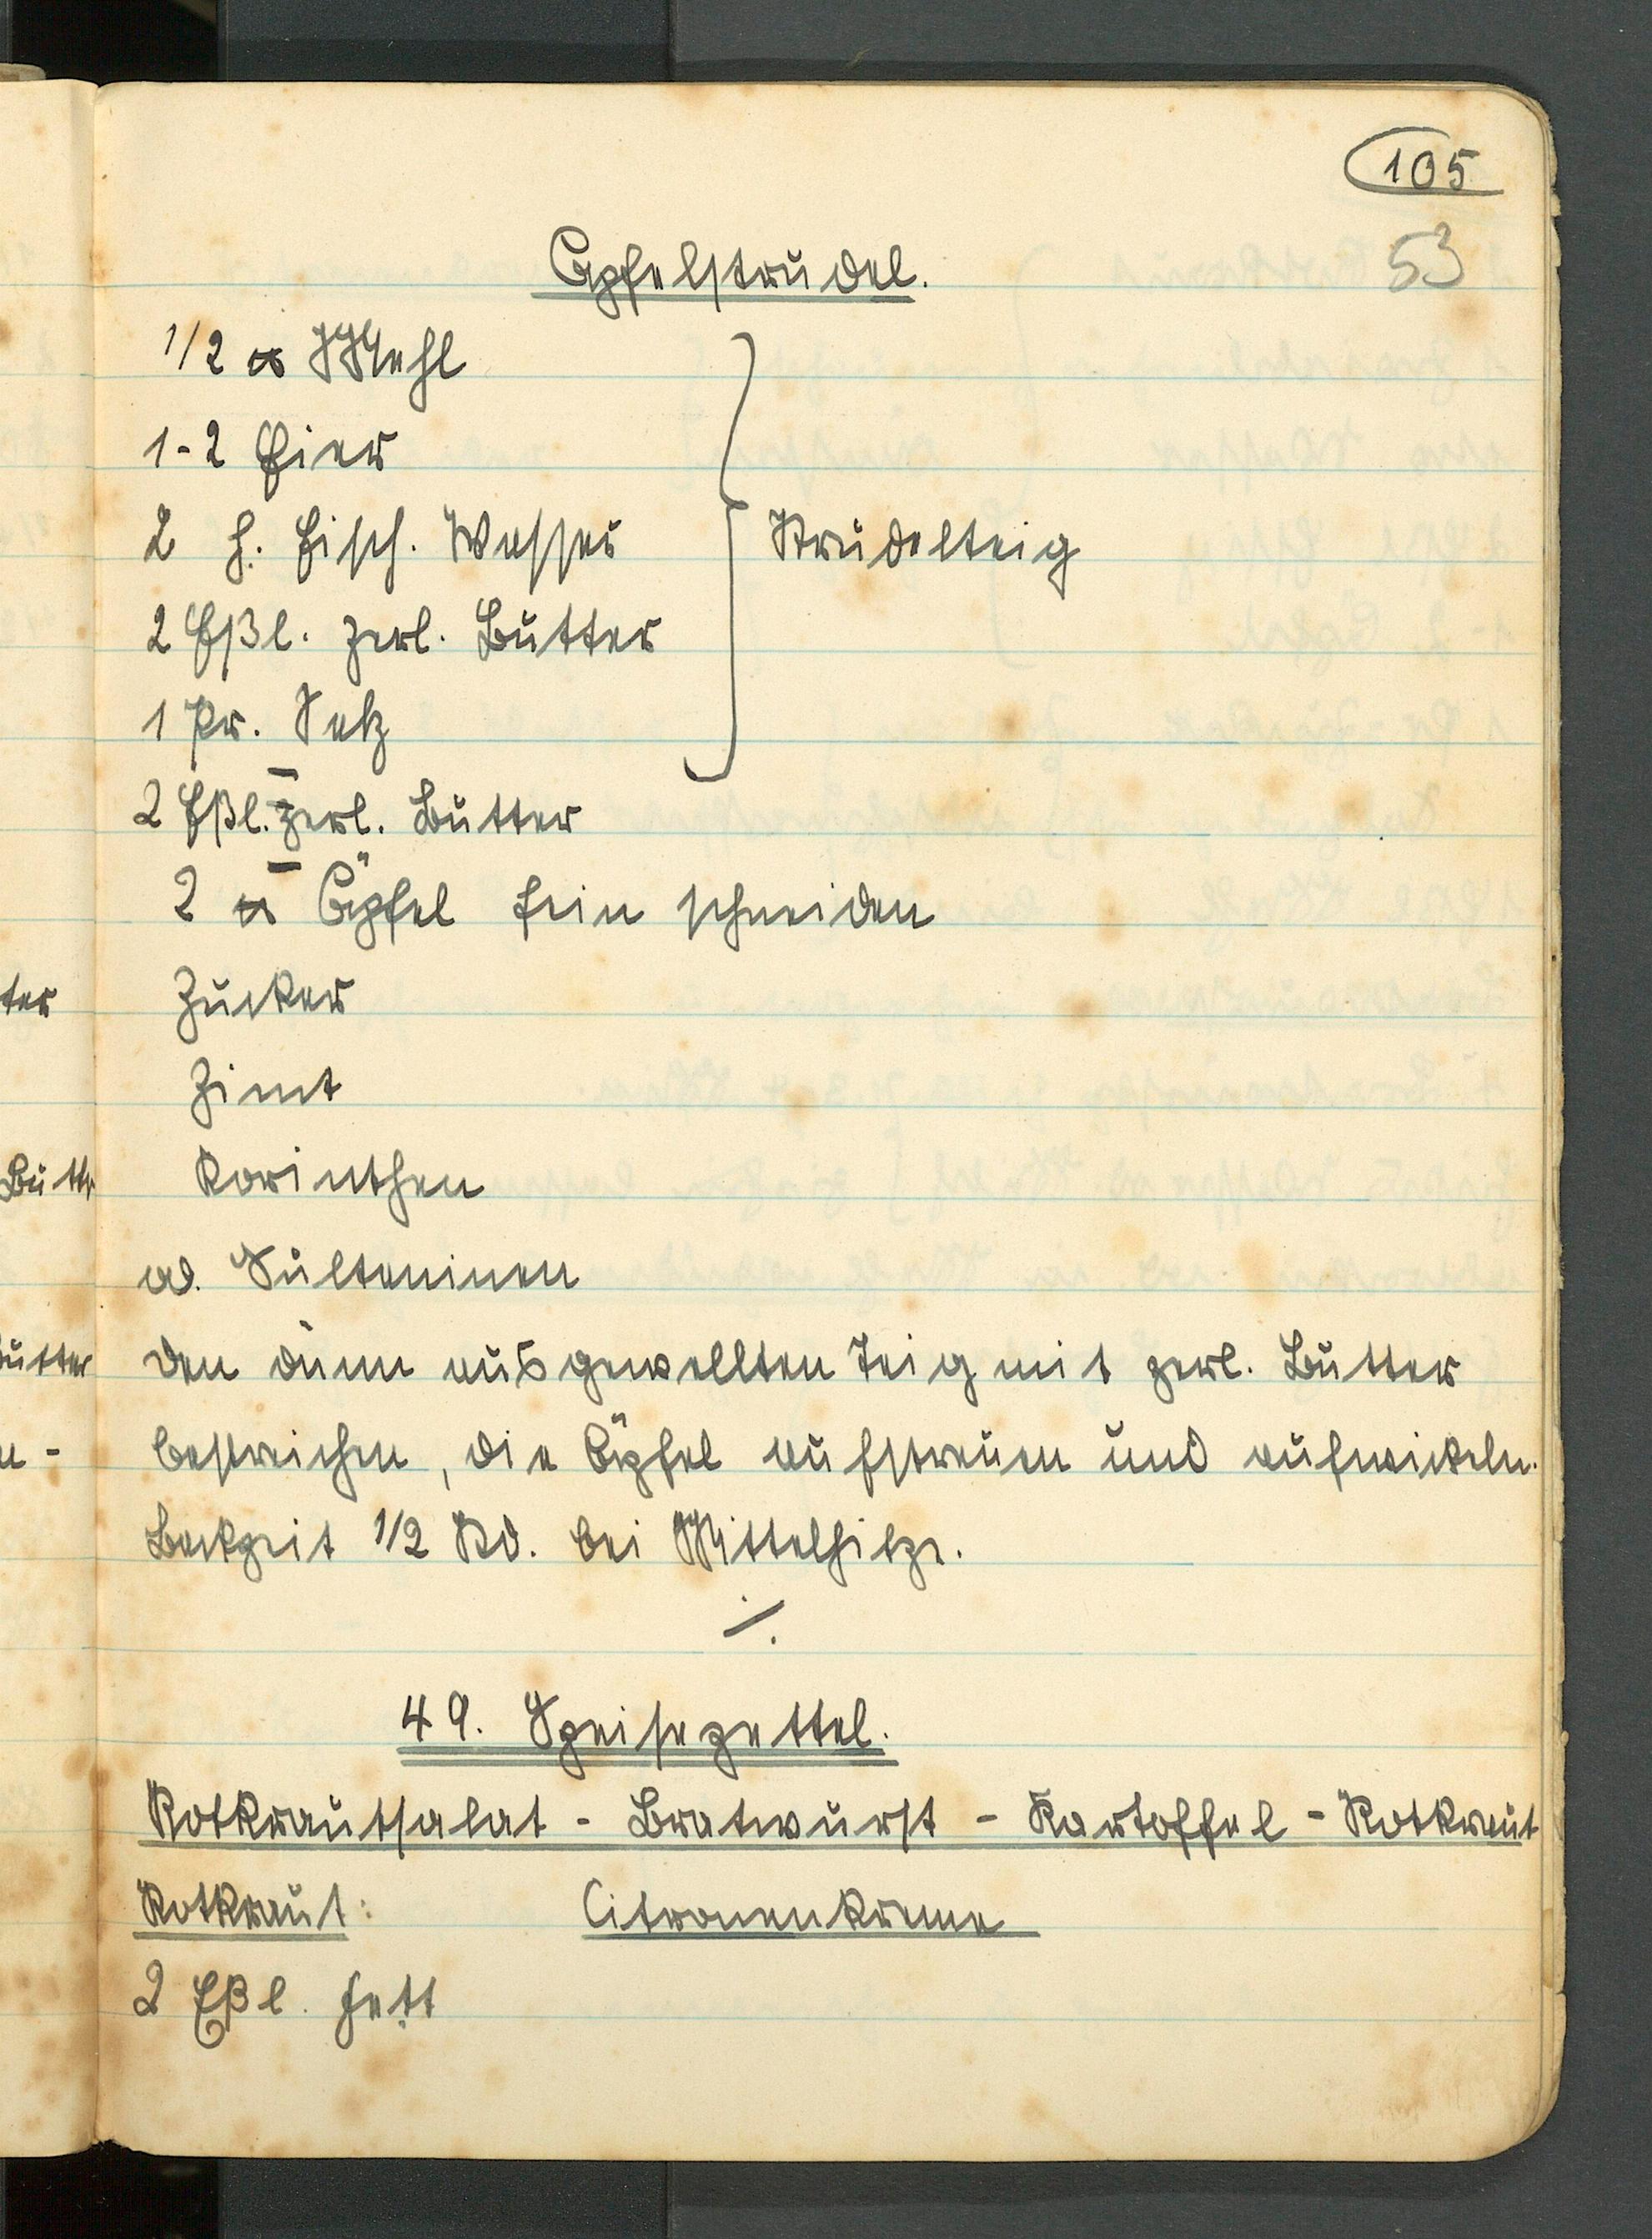 105
53
Apfelstrudel.
1/2 ℔ Mehl
1-2 Eier
2 h. Eisch. Wasser
Strudelteig
2 Eßl. zerl. Butter
1 Pr. Salz
2 Eßl. zerl. Butter
2 ℔ Äpfel fein schneiden
Zucker
Zimt
Korinthen
od. Sultaninen
den dünn ausgewellten Teig mit zerl. Butter
bestreichen, die Äpfel aufstreuen und aufwickeln.
Backzeit 1/2 Std. bei Mittelhitze.
49. Speisezettel.
Rotkrautsalat - Bratwurst - Kartoffel - Rotkraut
Rotkraut: Citronenkreme
2 Eßl. Fett
ter
Buttr
Butter